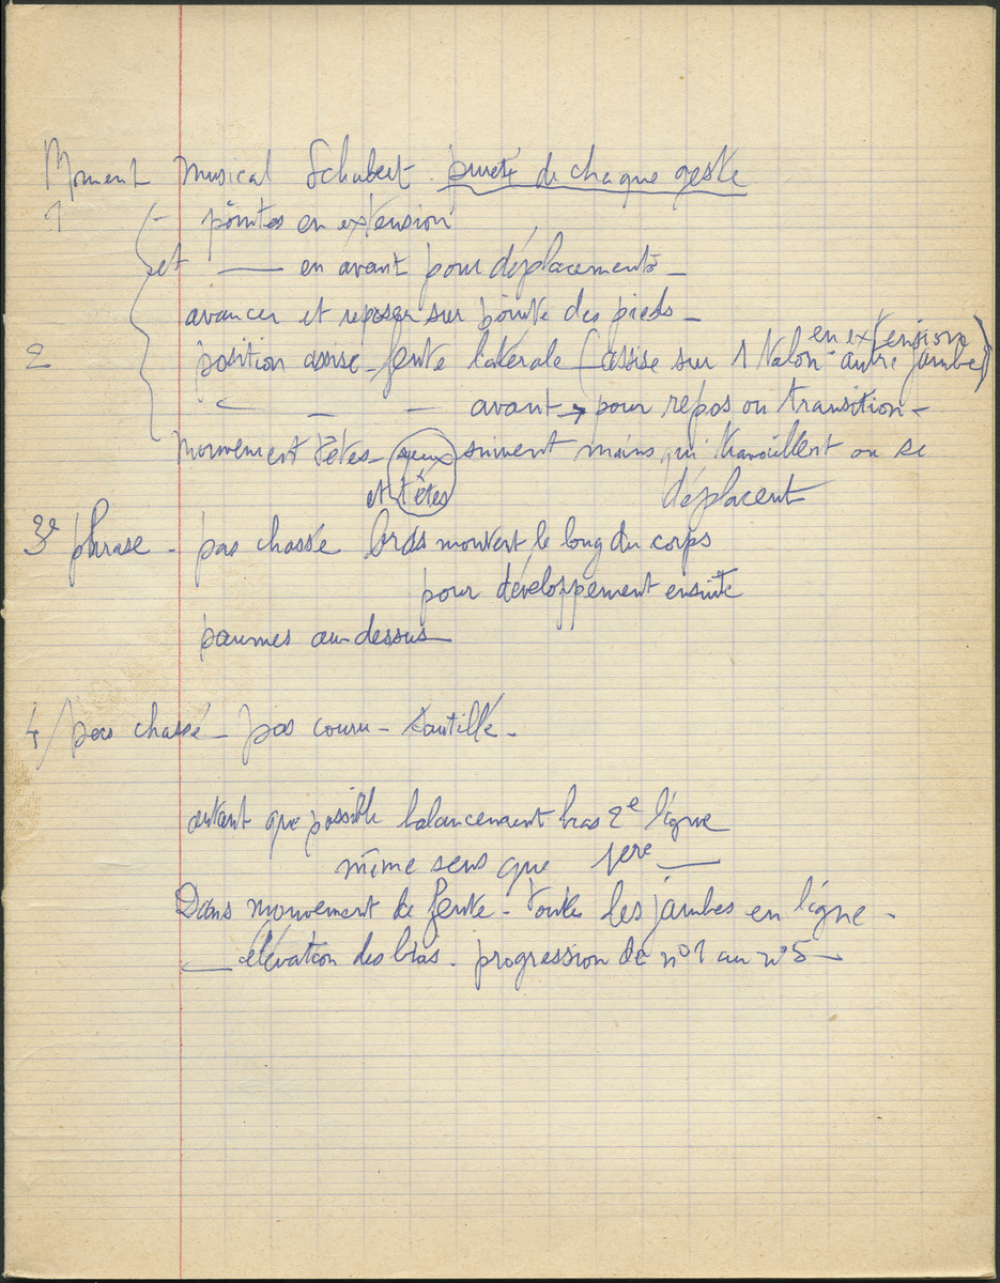 Moment musical Schubert. pureté de chaque geste
1 - pointes en extension
et —— en avant pour déplacements -
avancer et reposer sur pointe des pieds -
en extension
2 position assise - fente latérale (assise sur 1 talon - autre jambe)
— — — avant → pour repos ou transition -
mouvement têtes - yeux suivent mains qui travaillent ou se
et têtes déplacent
3e phrase - pas chassé bras montent le long du corps
pour développement ensuite
paumes au-dessus
4/ pas chassé - pas couru - sautillé -
autant que possible balancement bras 2e ligne
même sens que 1ere ——
Dans mouvement de fente - toutes les jambes en ligne -
—— élévation des bras - progression de n°1 au n°5 -